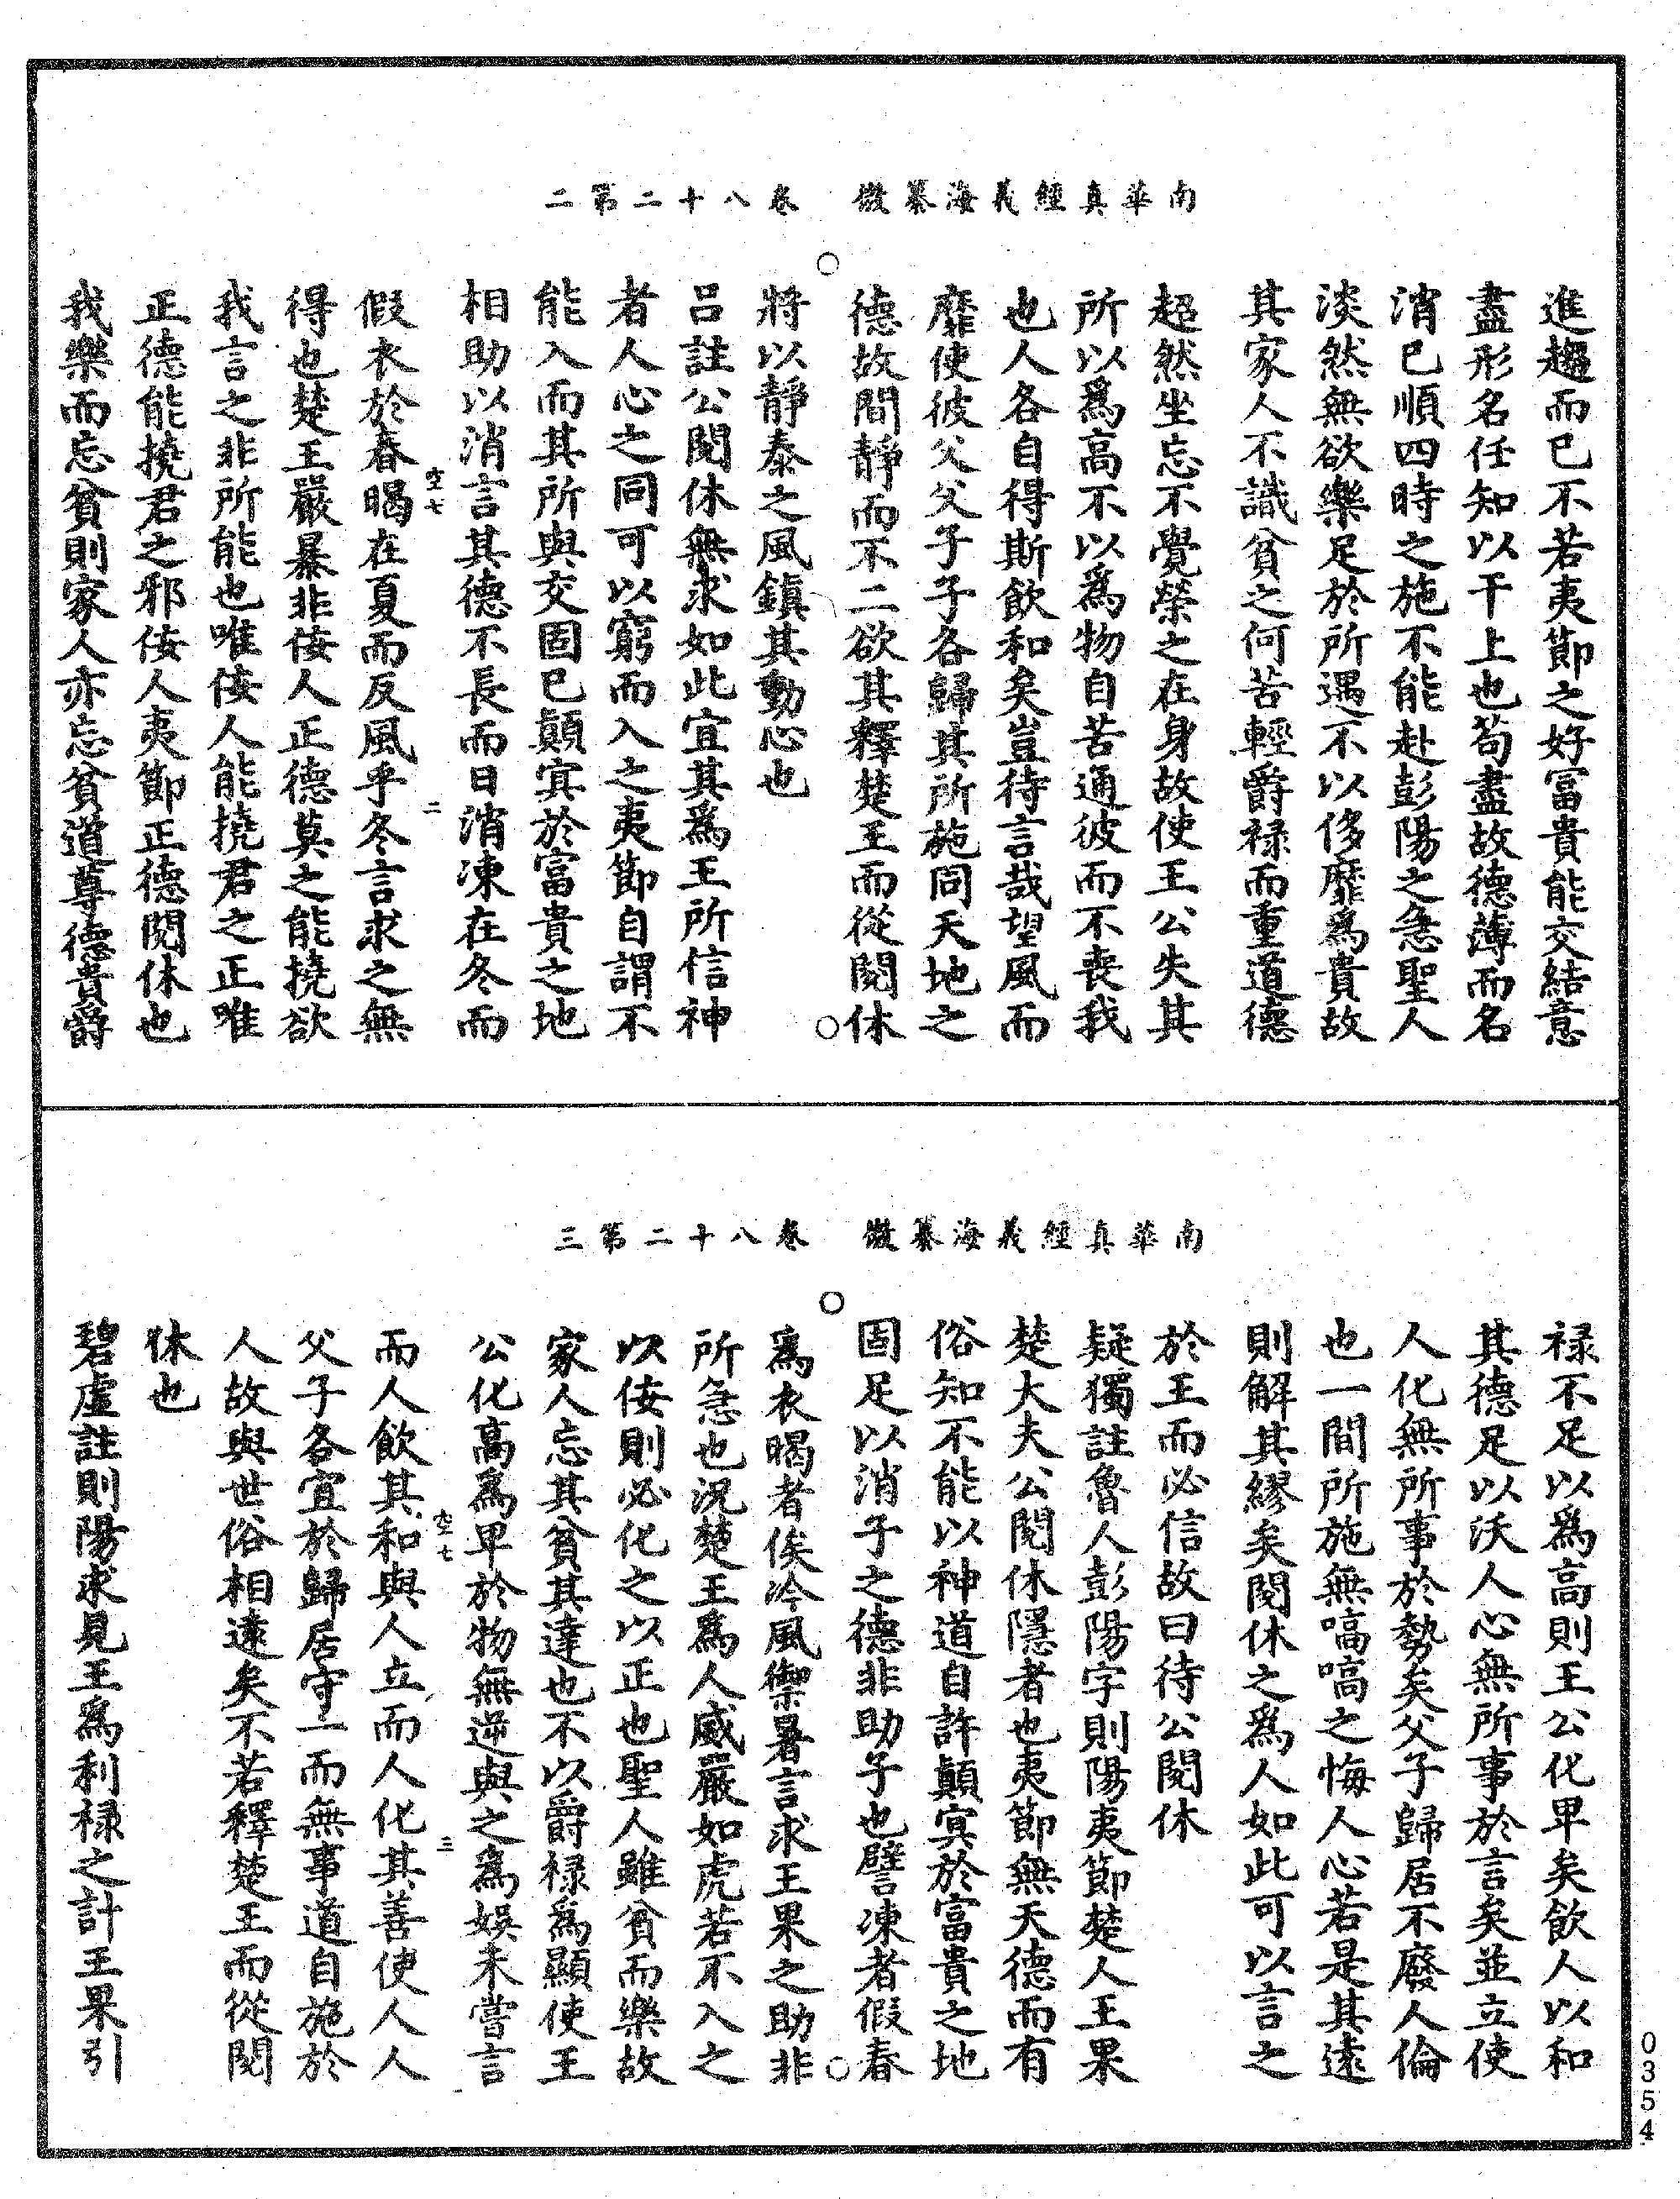 南華真經義海纂微　卷八十二第二
進趨而已不若夷節之好冨貴能交結意
盡形名任知以干上也苟盡故德薄而名
消已順四時之施不能赴彭陽之急聖人
淡然無欲樂足於所遇不以侈靡爲貴故
其家人不識貧之何苦輕爵禄而重道德
超然坐忘不覺榮之在身故使王公失其
所以爲高不以爲物自苦通彼而不喪我
也人各自得斯飲和矣豈待言哉望風而
靡使彼父父子子各歸其所施同天地之
德故間靜而不二欲其釋楚王而從閱休
將以靜泰之風鎮其動心也
吕註公閱休無求如此宜其爲王所信神
者人心之同可以窮而入之夷節自謂不
能入而其所與交固已顛㝠於富貴之地
相助以消言其德不長而日消凍在冬而
假衣於春暍在夏而反風乎冬言求之無
得也楚王嚴暴非佞人正德莫之能撓欲
我言之非所能也唯佞人能撓君之正唯
正德能撓君之邪佞人夷節正德閱休也
我樂而忘貧則家人亦忘貧道尊德貴爵
空七
二
南華真經義海纂微　卷八十二第三
禄不足以爲高則王公化卑矣飲人以和
其德足以沃人心無所事於言矣並立使
人化無所事於勢矣父子歸居不廢人倫
也一間所施無嗃嗃之悔人心若是其遠
則解其繆矣閱休之爲人如此可以言之
於王而必信故曰待公閱休
疑獨註魯人彭陽字則陽夷節楚人王果
楚大夫公閱休隱者也夷節無天德而有
俗知不能以神道自許顛㝠於富貴之地
固足以消子之德非助子也譬凍者假春
爲衣暍者俟冷風禦暑言求王果之助非
所急也況楚王爲人威嚴如虎若不入之
以佞則必化之以正也聖人雖貧而樂故
家人忘其貧其達也不以爵禄爲顯使王
公化高爲卑於物無逆與之爲娛未嘗言
而人飲其和與人立而人化其善使人人
父子各宜於歸居守一而無事道自施於
人故與世俗相遠矣不若釋楚王而從閱
休也
碧虛註則陽求見王爲利禄之計王果引
空七
三
0354